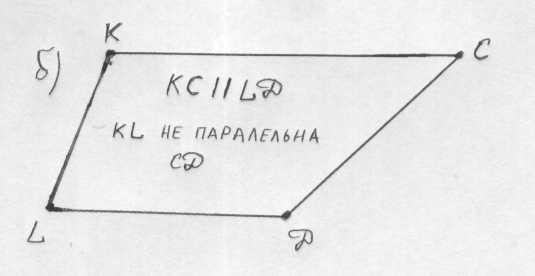 K
C
б)
KC || LD
KL НЕ ПАРАЛЕЛЬНА
CD
L
D